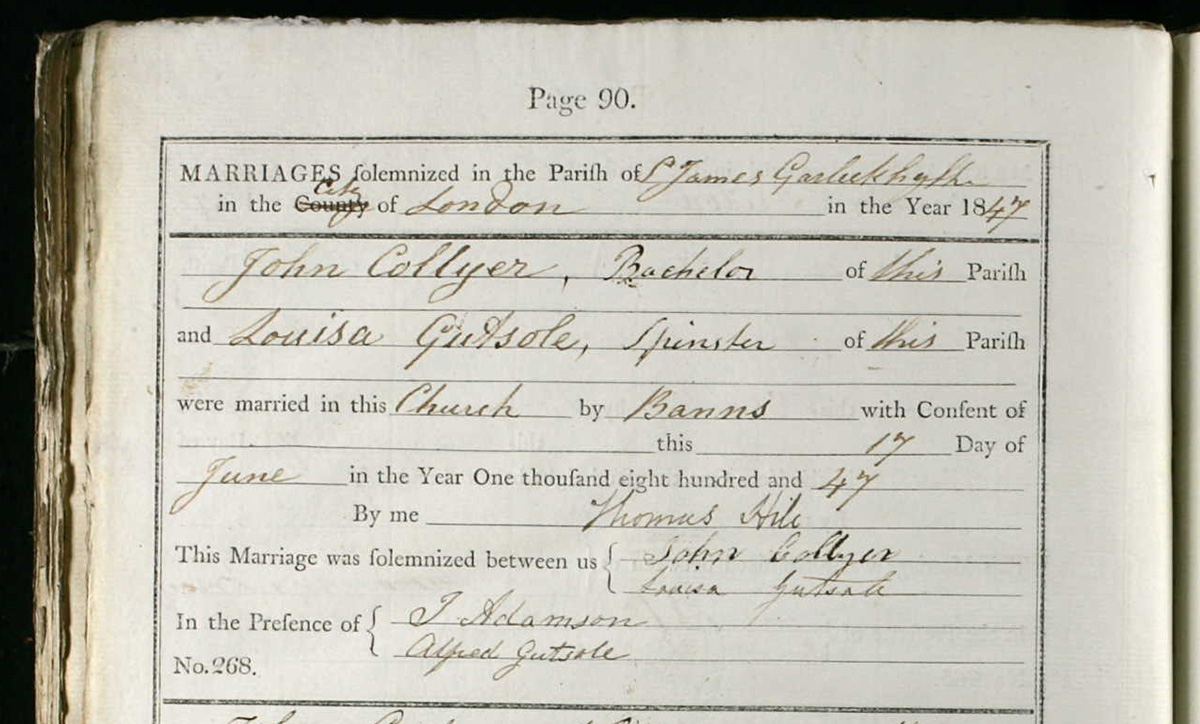 Page 90.
MARRIAGES ſolemnized in the Pariſh of St James Garlickhythe
City
in the County of London in the Year 1847
John Collyer, Bachelor of this Pariſh
and Louisa Gutsole, Spinster of this Pariſh
were married in this Church by Banns with Conſent of
this 17 Day of
June in the Year One thouſand eight hundred and 47
By me Thomas Hill
This Marriage was ſolemnized between us { John Collyer
Louisa Gutsole
In the Preſence of { J Adamson
Alfred Gutsole
No. 268.